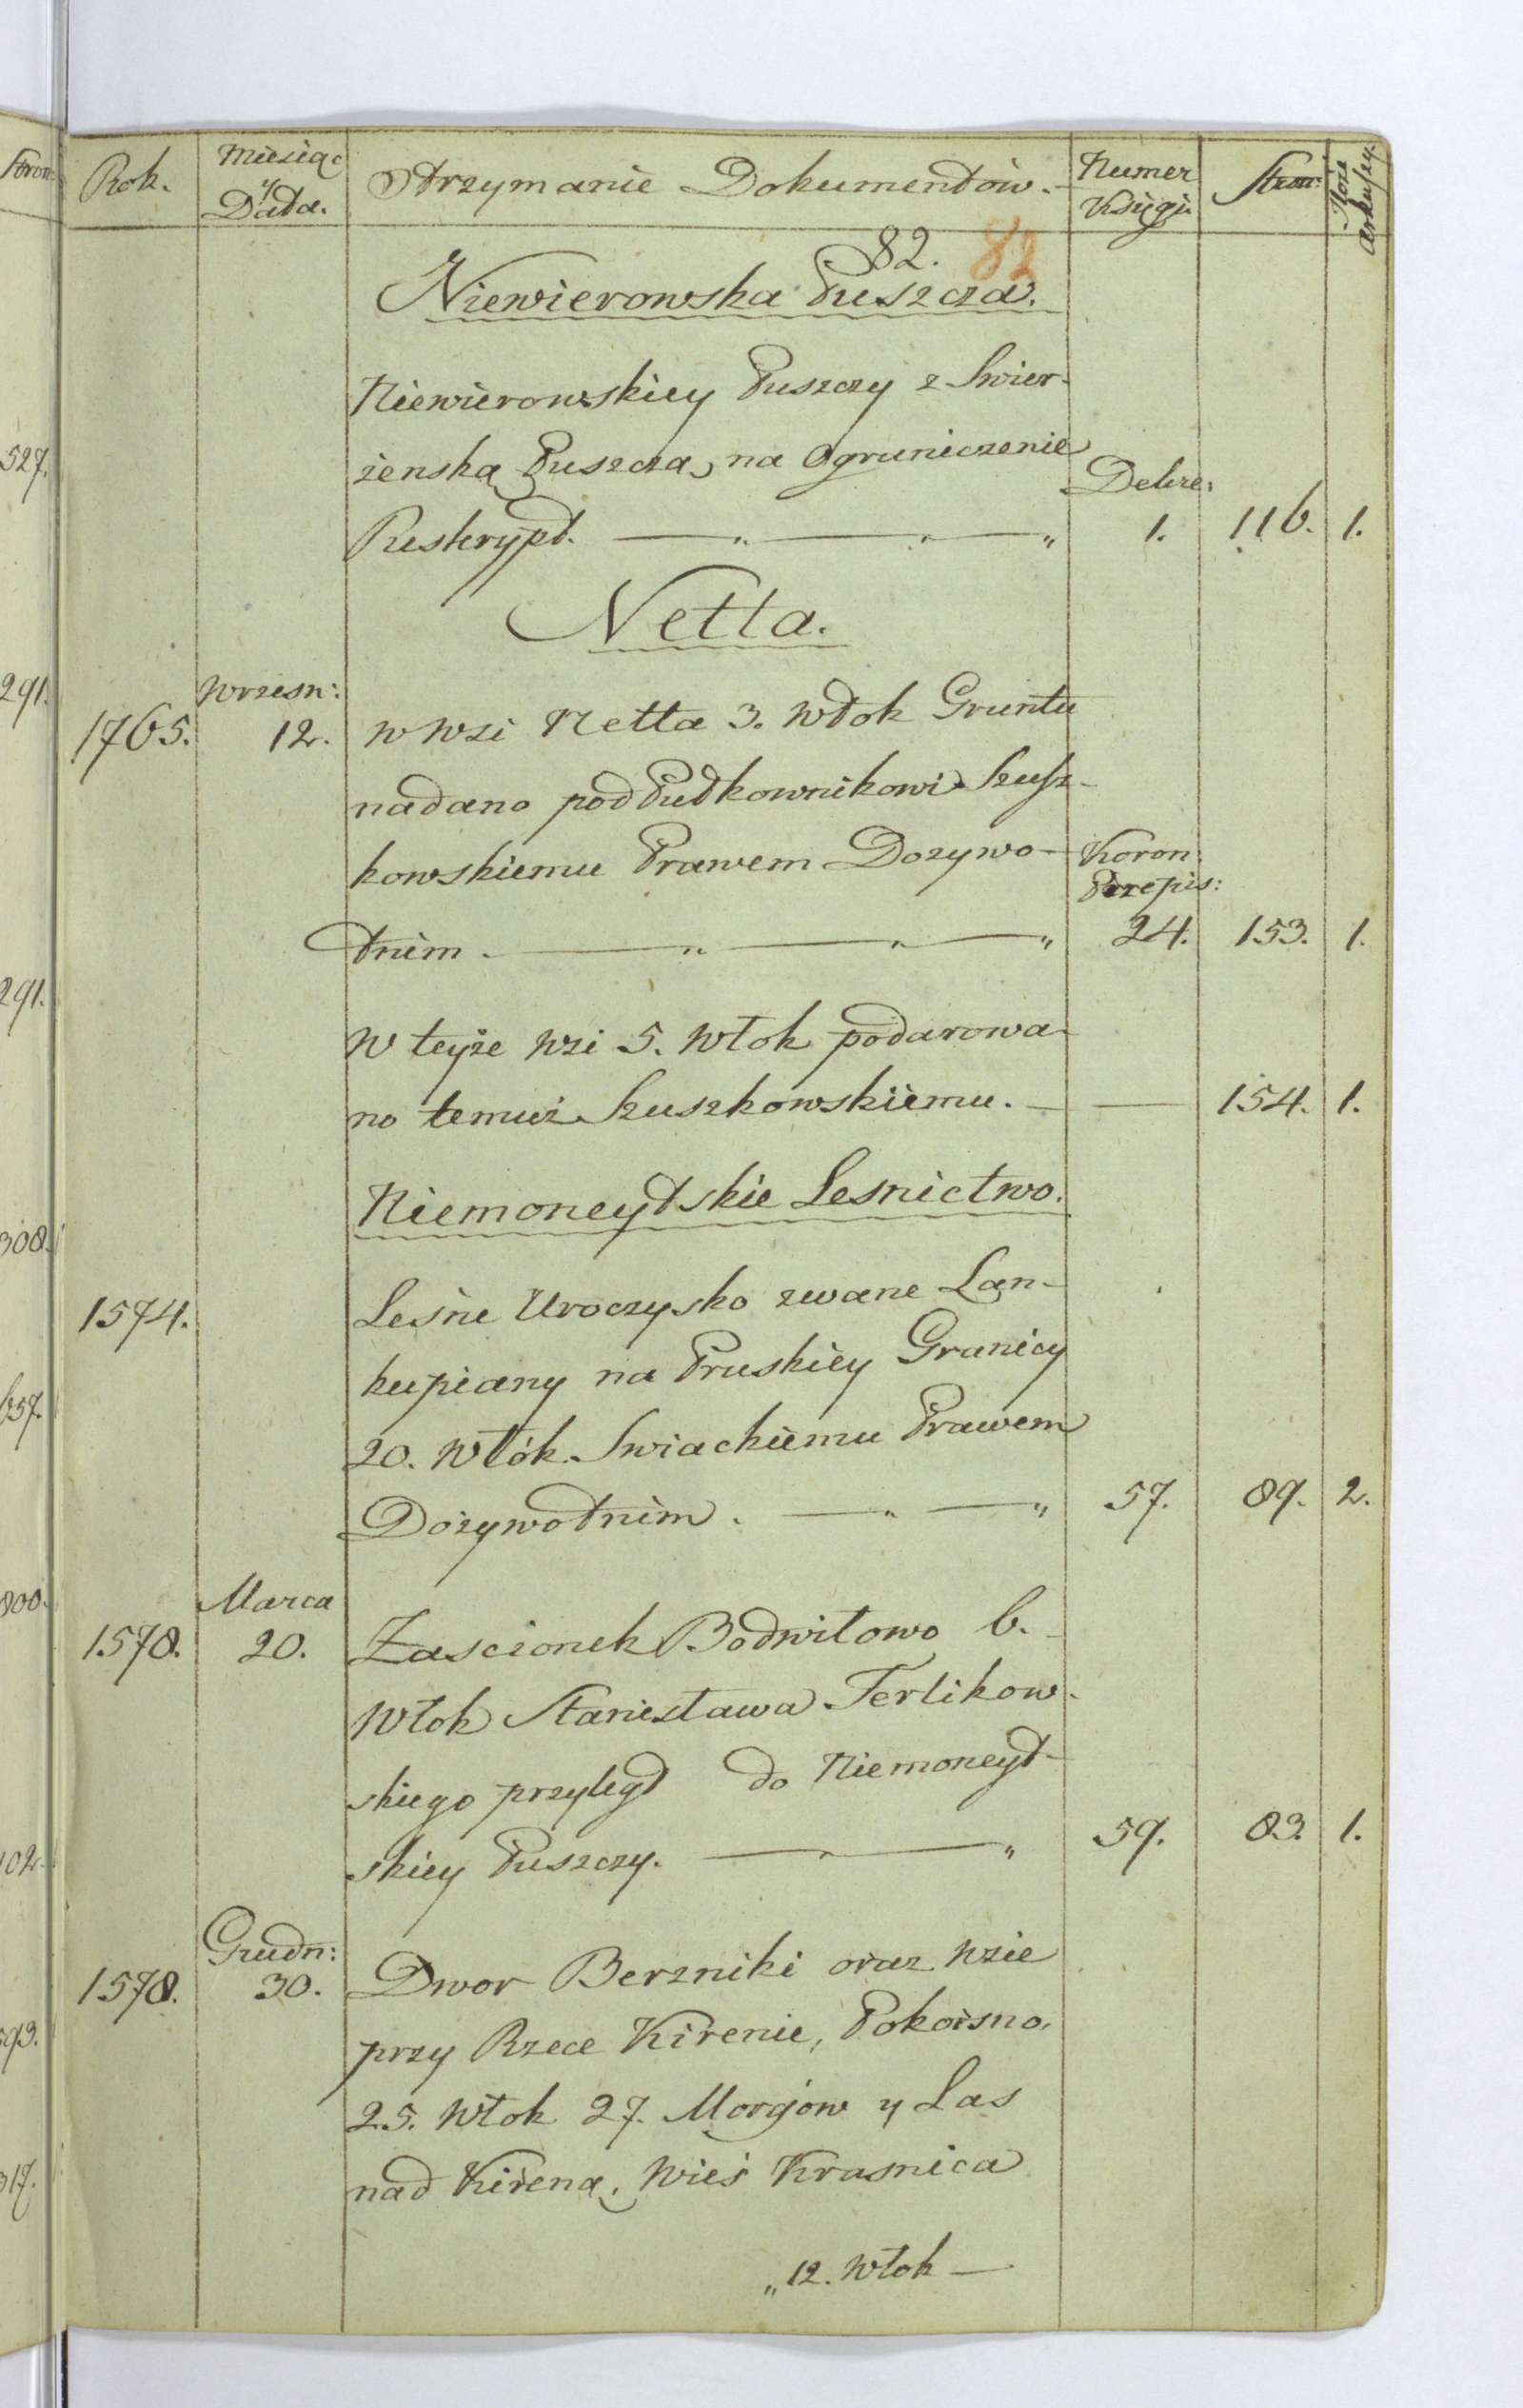 Stron:
Rok.
Miesiąc
y
Data.
Otrzymanie Dokumentów.
Numer
Księgi.
Stron:
Ilość
arkuszy.
82. 82
Niewierowska Puszcza.
Niewierowskiey Puszczy z Swier-
żenską Puszczą, na Ograniczenie
Dekre:
Reskrypt. — „ — „ — „ 1. 116. 1.
Netta.
Wrzesn:
1765. 12. w wsi Netta 3. włok Gruntu
nadano podPułkownikowi Szusz-
kowskiemu Prawem Dozywo-
Koron:
Przepis:
tnim. — „ — „ — „ 24. 153. 1.
W teyże wsi 5. włok podarowa-
no temuż Szuszkowskiemu. — — 154. 1.
Niemoneytskie Lesnictwo.
1574. Leśne Uroczysko zwane Lan-
kupiany na Pruskiey Granicy
20. włók Swiackiemu Prawem
Dożywotnim. — „ — „ 57. 89. 2.
Marca
1578. 20. Zascionek Bodwitowo 6.
włok Stanisława Terlikow-
skiego przyległ do Niemoneyt-
skiey Puszczy. — „ — „ 59. 83. 1.
Grudn:
1578. 30. Dwor Berzniki oraz wsie
przy Rzece Kirenie, Pokoisno,
25. włok 27. Morgów y Las
nad Kireną, wieś Krasnica
„12. włok —
527.
291.
291.
308.
800.
317.